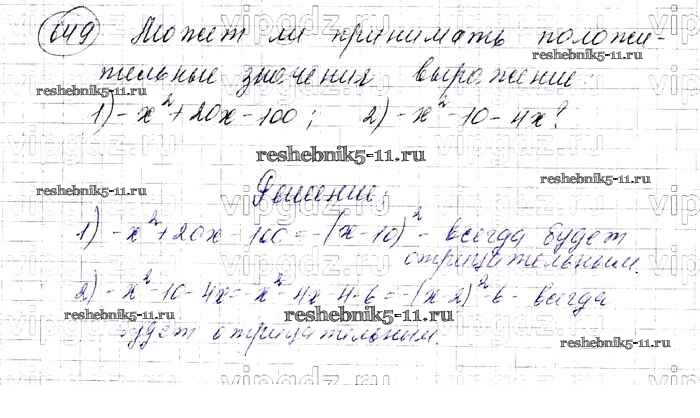 649 Может ли принимать положи-
тельные значения выражение:
1) -x²+20x-100; 2) -x²-10-4x?
Решение:
1) -x²+20x-100=-(x-10)² - всегда будет
отрицательным.
2) -x²-10-4x=-x²-4x-4-6=-(x-2)²-6- всегда
будет отрицательным.
reshebnik5-11.ru
reshebnik5-11.ru
reshebnik5-11.ru
reshebnik5-11.ru
reshebnik5-11.ru
reshebnik5-11.ru
reshebnik5-11.ru
reshebnik5-11.ru